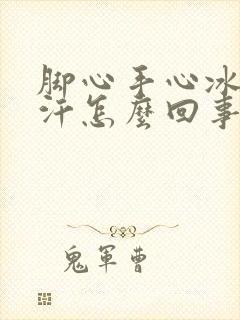 脚心手心冰
汗怎麼回事
鬼軍曹